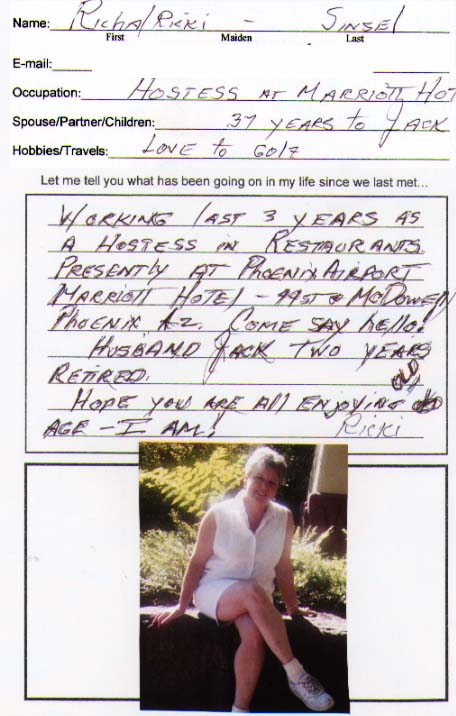 Name: Richa/Ricki - Sinsel
First Maiden Last
E-mail:
Occupation: Hostess at Marriott Hot
Spouse/Partner/Children: 37 years to Jack
Hobbies/Travels: Love to Golf
Let me tell you what has been going on in my life since we last met...
Working last 3 years as
a Hostess in Restaurants.
Presently at Phoenix Airport
Marriott Hotel - 44st & McDowell
Phoenix Az. Come say hello!
Husband Jack two years
Retired.
Hope you are all enjoying old
age - I am! Ricki